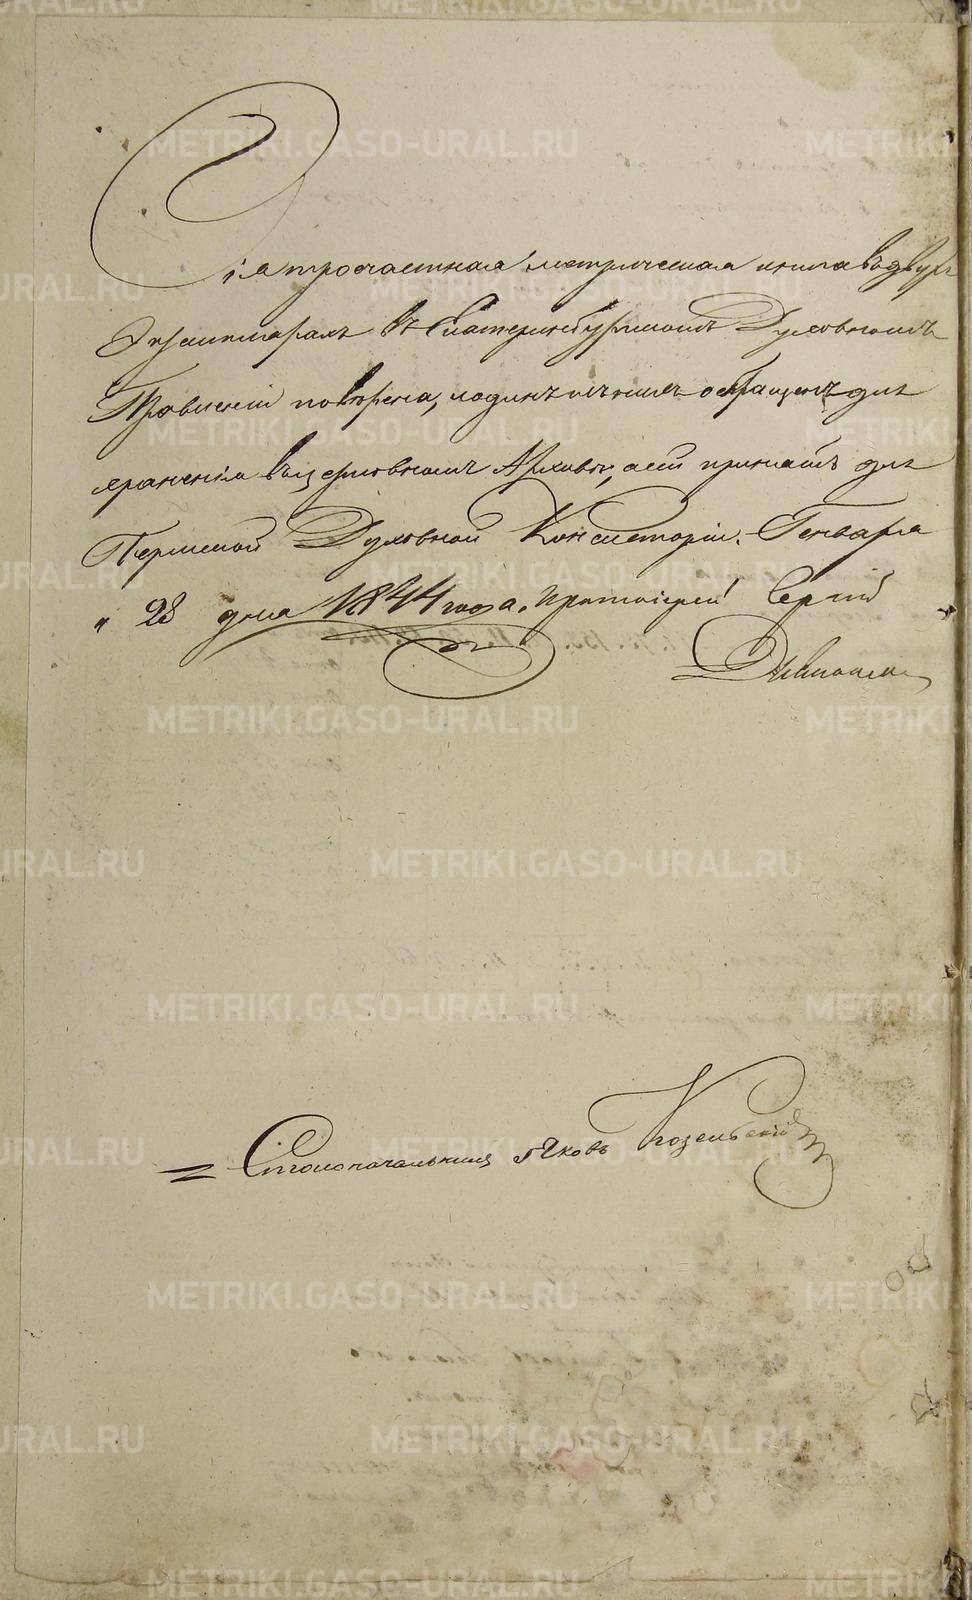 Сія тročастная метрическая книга въ двухъ
Экземплярахъ въ Екатеринбургскомъ Духовномъ
Правленіи поверена, и одинъ изъ нихъ обращенъ для
храненія въ церковномъ Архивѣ, а сей принятъ для
Пермской Духовной Консисторіи. Генваря
" 28 дня 1844 года. Протоіерей Сергій
= Столоначальникъ Яковъ Козельскій
METRIKI.GASO-URAL.RU